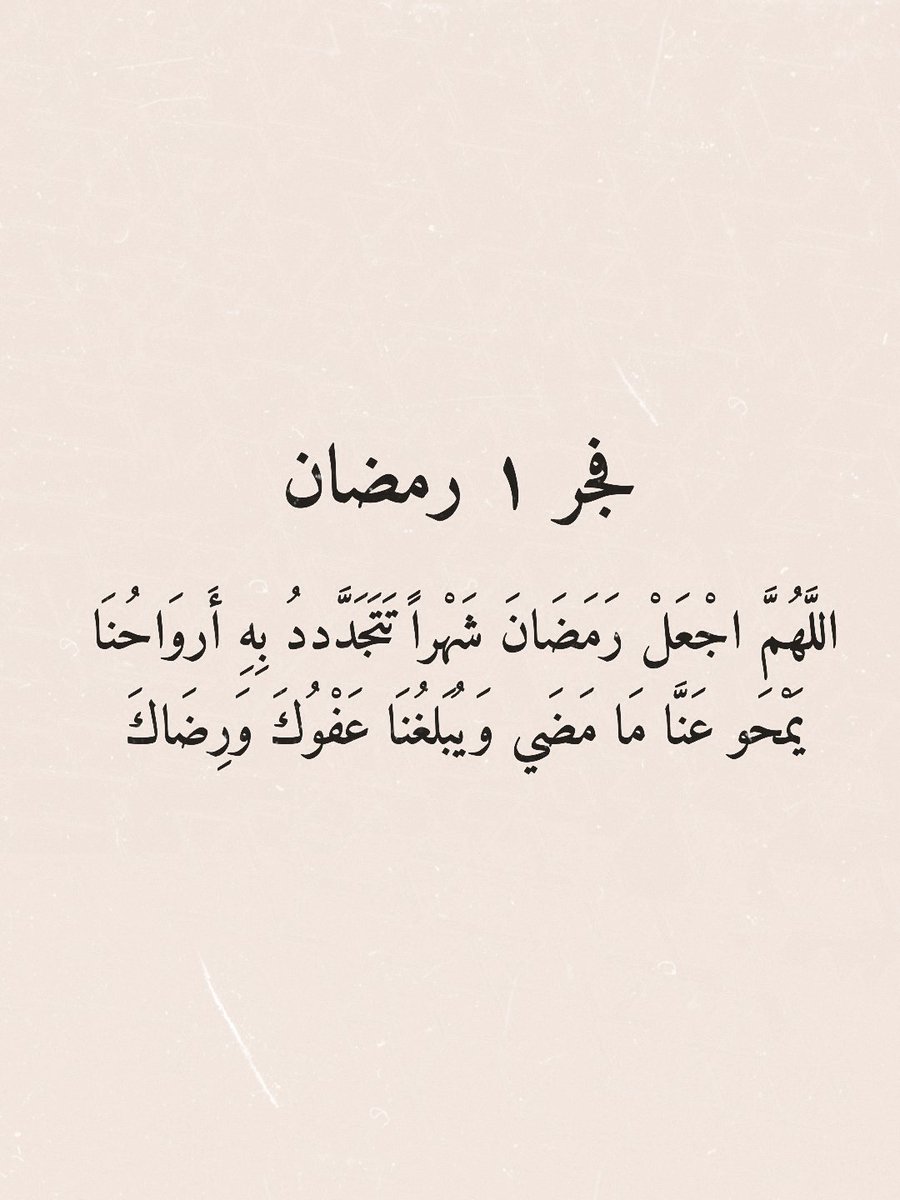 فجر ١ رمضان
اللَّهُمَّ اجْعَلْ رَمَضَانَ شَهْراً تَتَجَدَّددُ بِهِ أَروَاحُنَا
يَمْحَو عَنَّا مَا مَضَي وَيُبَلغُنَا عَفْوُكَ وَرِضَاكَ